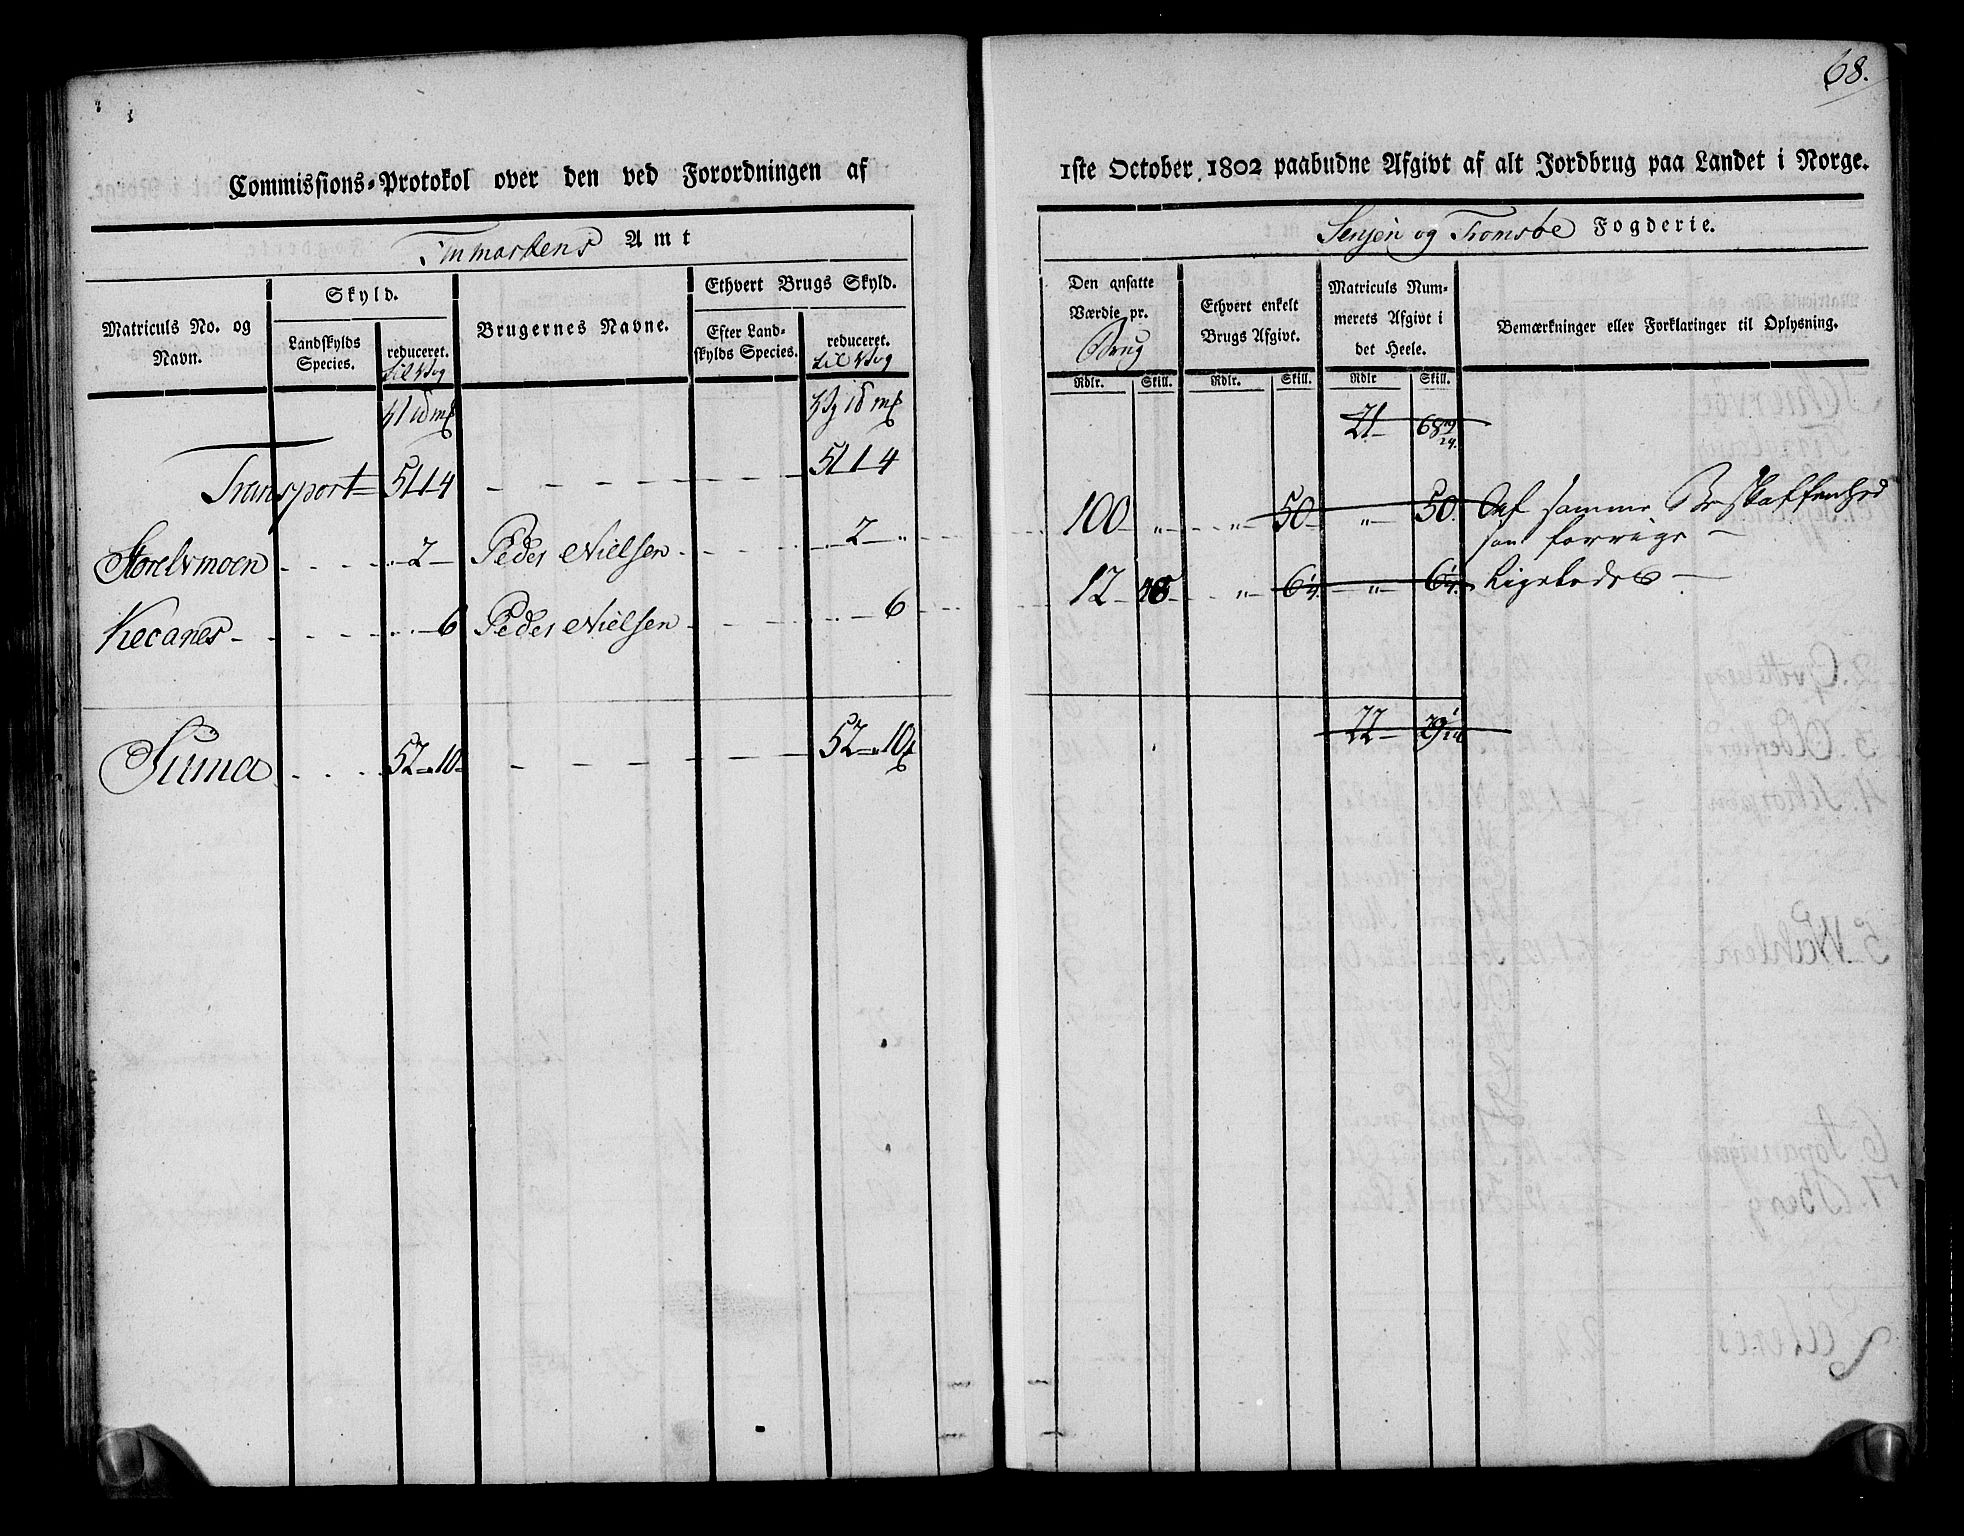 68.
Commissions-Protokol over den ved Forordningen af
Finmarkens Amt
Matriculs No. og Navn.
Skyld.
Landskylds Species.
reduceret. til Vog
Brugernes Navne.
Ethvert Brugs Skyld.
Efter Landskylds Species.
reduceret. til Vog
Transport 51 1 4 51 1 4
Storelvmoen 2 Peder Nielsen 2 "
Kecanes 6 Peder Nielsen 6
Suma 52 " 10 52 " 10
1ste October 1802 paabudne Afgivt af alt Jordbrug paa Landet i Norge.
Senjen og Tromsøe Fogderie.
Den ansatte Værdie pr. Brug
Ethvert enkelt Brugs Afgivt.
Matriculs Nummerets Afgivt i det Heele.
Bemærkninger eller Forklaringer til Oplysning.
Rdlr. Skill. Rdlr. Skill. Rdlr Skill.
21 68 19/24
100 " " 50 " 50. Af samme Beskaffenhed
som forrige
12 48 " 6 1/4 " 6 1/4 Ligeledes
22 29 1/24